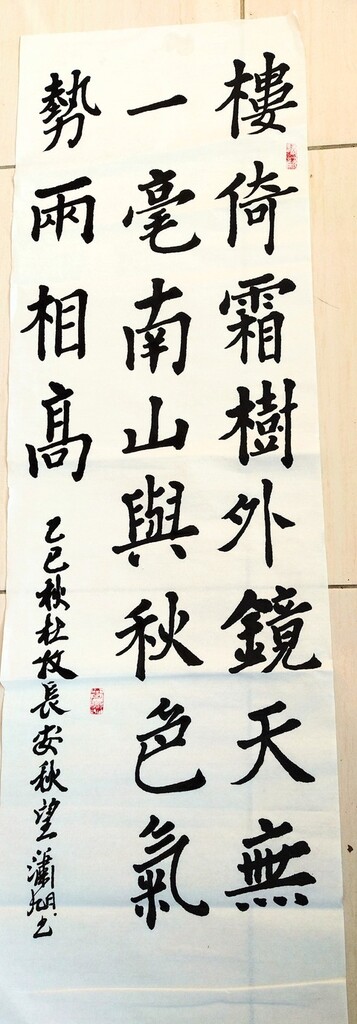 樓倚霜樹外鏡天無
一毫南山與秋色氣
勢兩相高
乙巳秋杜牧長安秋望瀟旭书